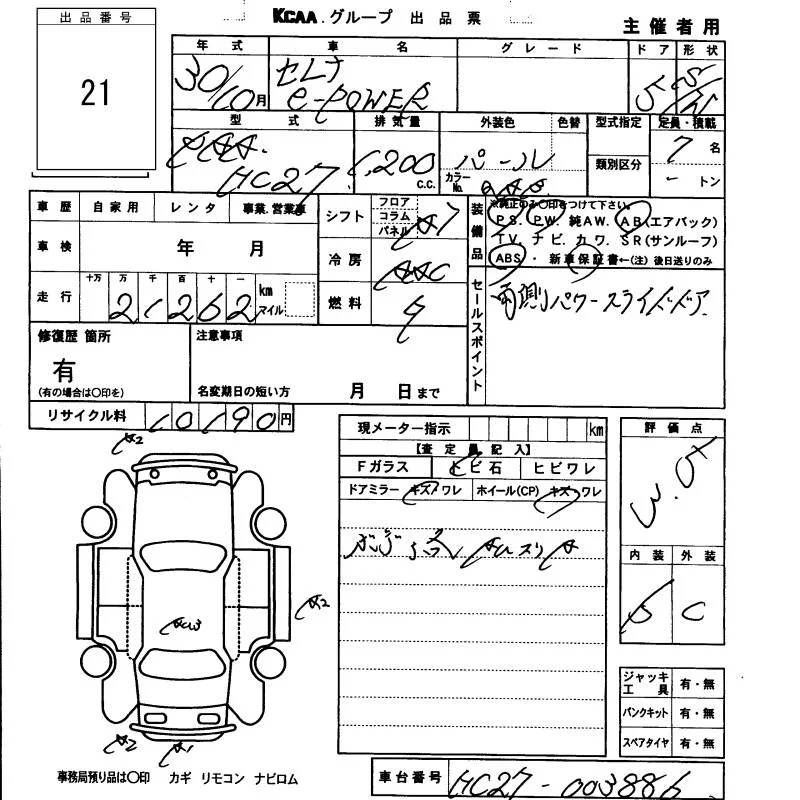 出品番号
21
KCAA.グループ 出品票
主催者用
年式 車名 グレード ドア 形状
30/10月 セレナ e-POWER 5
型式 排気量 外装色 色替 型式指定 定員・積載
HC27 1,200 C.C. パール カラーNo. 類別区分 7名
- トン
車歴 自家用 レンタ 事業.営業車
車検 年 月
走行 十万 万 千 百 十 一
21262 km マイル
シフト フロア コラム パネル A7
冷房 AAC
燃料
装備品 ※純正のみ〇印をつけて下さい。
PS. PW. 純AW. AB(エアバック)
TV. ナビ. カワ. SR(サンルーフ)
ABS・新車保証書←(注)後日送りのみ
セールスポイント 両側パワースライドドア
修復歴 箇所
有
(有の場合は〇印を)
注意事項
名変期日の短い方 月 日まで
リサイクル料 10190円
現メーター指示 km
【査定員記入】
Fガラス トビ石 ヒビワレ
ドアミラー キズ/ワレ ホイール(CP) キズ/ワレ
評価点
内装 外装
C
A2
A2
A2
A1
ジャッキ工具 有・無
パンクキット 有・無
スペアタイヤ 有・無
事務局預り品は〇印 カギ リモコン ナビロム
車台番号 HC27-003886